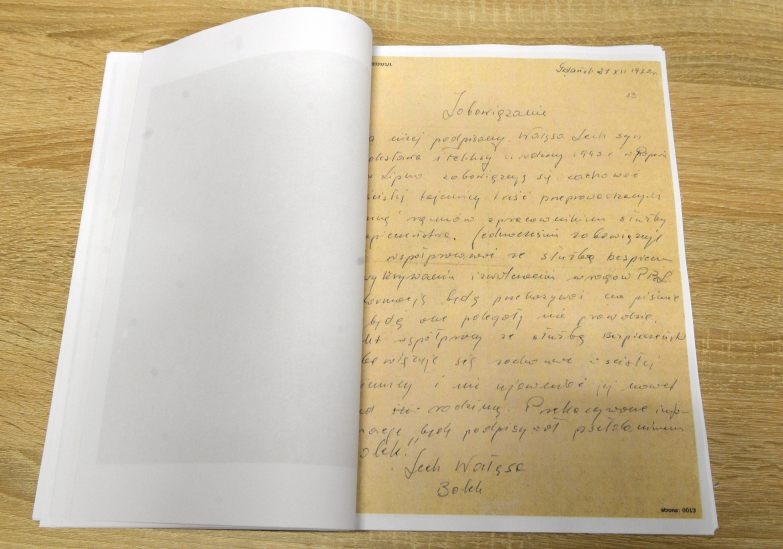 Gdańsk 21 XII 1970r.
13
Zobowiązanie
niżej podpisany Wałęsa Lech syn
olesława i Feliksy urodzony 1943 r w Popowi
Lipno zobowiązują się zachować
ścisłej tajemnicy treść przeprowadzonych
rozmów z pracownikiem służby
pieczeństwa. Jednocześnie zobowiązuję
współpracować ze służbą bezpiecze
wykrywaniu i zwalczaniu wrogów PRL
ormacją będą przekazywać na piśmie
będą one polegały na prawdzie.
kt współpracy ze służbą Bezpieczeńst
wiązuję się zachować w ścisłej
emnicy i nie ujawniać jej nawet
rodziną. Przekazywane info-
macje będą podpisywał pseudonimem
olek"
Lech Wałęsa
Bolek
strona: 0013